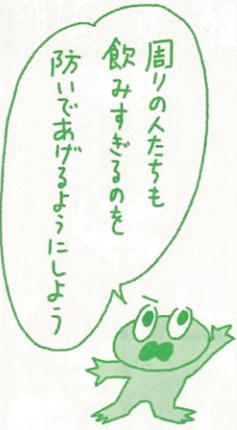 周りの人たちも
飲みすぎるのを
防いであげるようにしよう